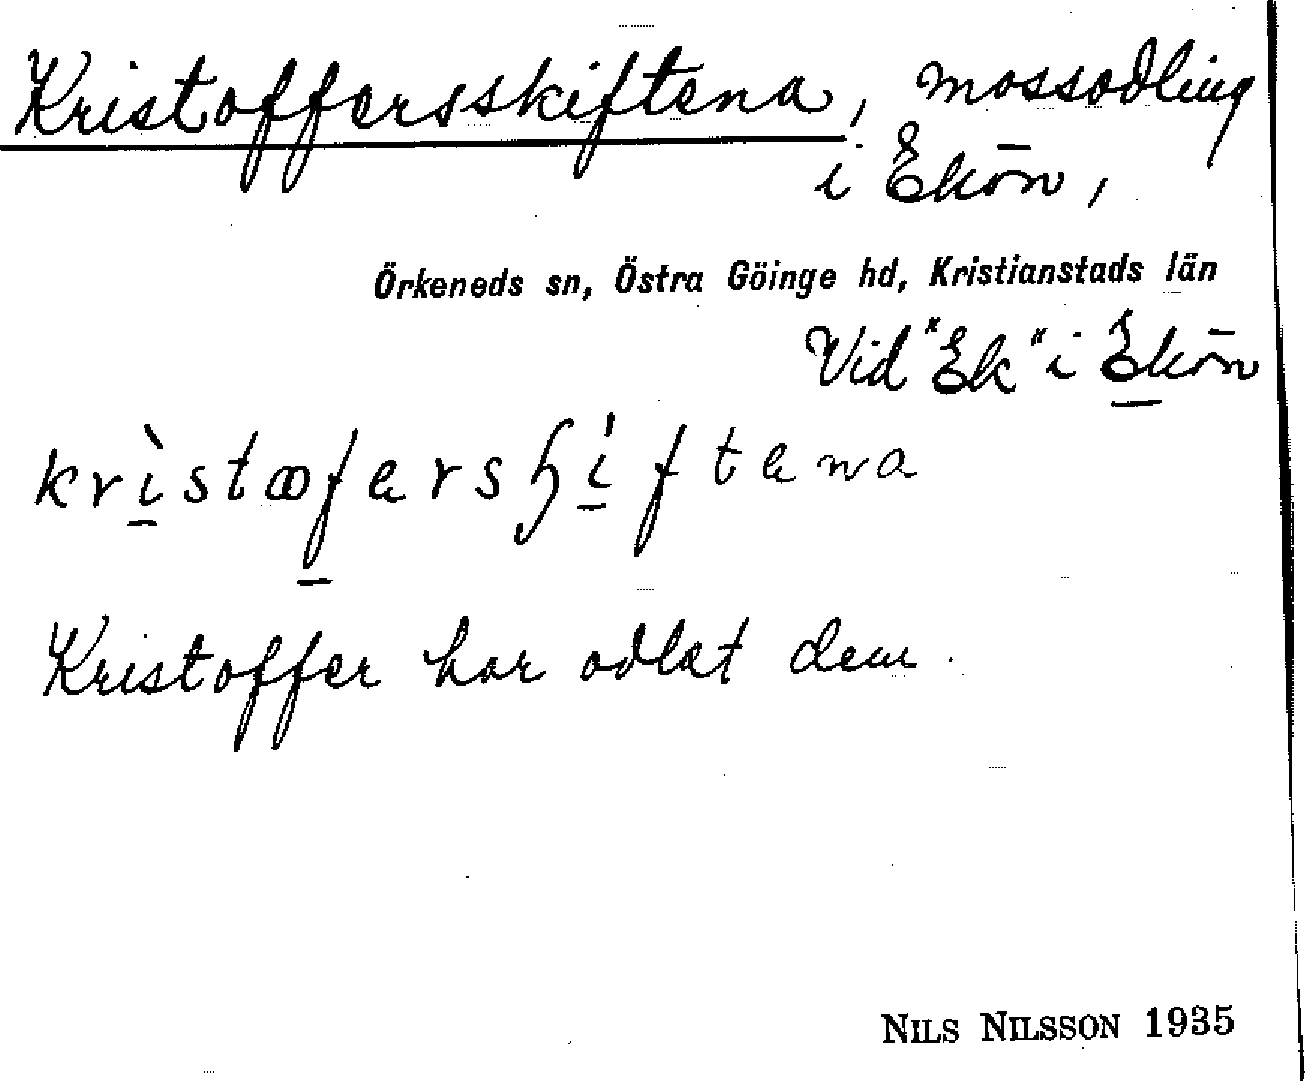 Kristoffersskiftena, mossodling
i Ekön,
Örkeneds sn, Östra Göinge hd, Kristianstads län
Vid "Ek" i Ekön
krìstæfersɧíftena
Kristoffer har odlat dem.
NILS NILSSON 1935